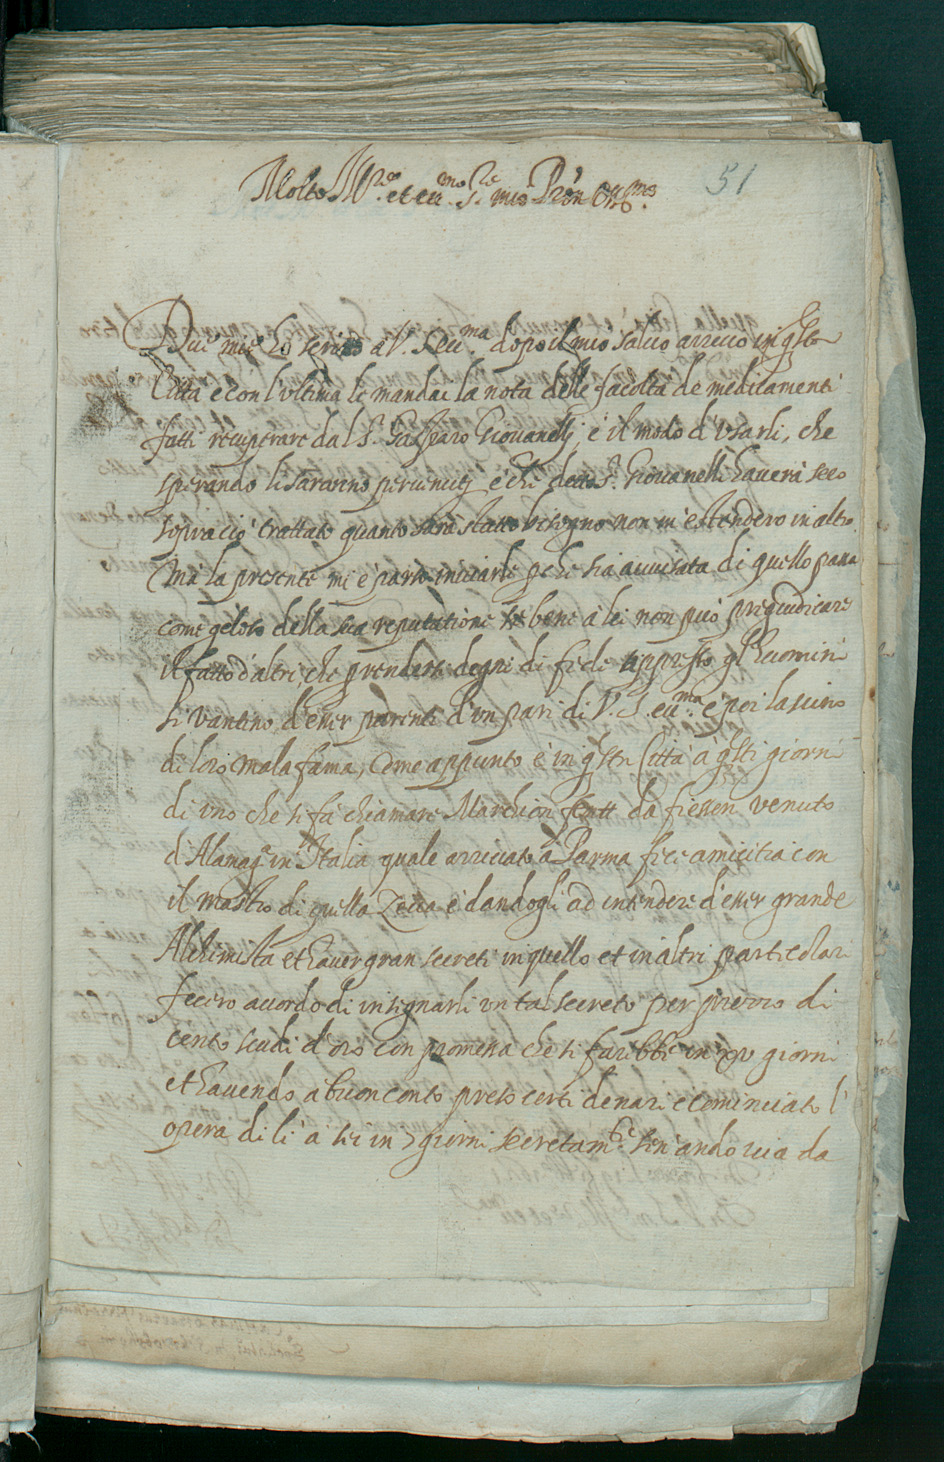 Molto Ill.re et ecc.mo S.r mio P'ron Oss.mo
51
Due mie hò scritto à V. S. ecc.ma dopo il mio salvo arrivo in q'sta
Città e con l'ultima le mandai la nota delle facoltà de medicamenti
fatti recuperare dal S.r Gasparo Giovanelli, e il modo d'usarli, che
sperando li saranno pervenuti e che detto S.r Giovanelli haverà seco
sopra ciò trattato quanto sarà stato bisogno non m'estenderò in altro
Mà la presente mi è parso inviarle p'che sia avvisata di quello passa
come geloso della sua reputatione se bene à lei non può pregiudicare
il fatto d'altri, che p'rendersi degni di fede appresso gl'huomini
si vantino d'esser parenti d'un pari di V. S. ecc.ma e poi lascino
di loro mala fama, come appunto è in q'sta Città à q'sti giorni
di uno che si fà chiamare Marchion da fiessen venuto
d'Alamag.a in Italia quale arrivato à Parma fece amicitia con
il mastro di quella Zecca e dandogli ad intendere d'esser grande
Alchimista et haver gran secreti in quello et in altri particolari
fecero accordo di insegnarli un tal secreto per prezzo di
cento scudi d'oro con promessa che si farebbe in xv giorni
et havendo a buon conto preso certi denari e cominciato l'
opera di li à sei in 7 giorni secretam.te se n'andò via da